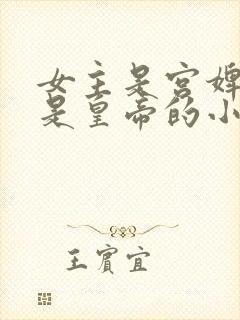 女主是宫婢
是皇帝的小
王宾宜